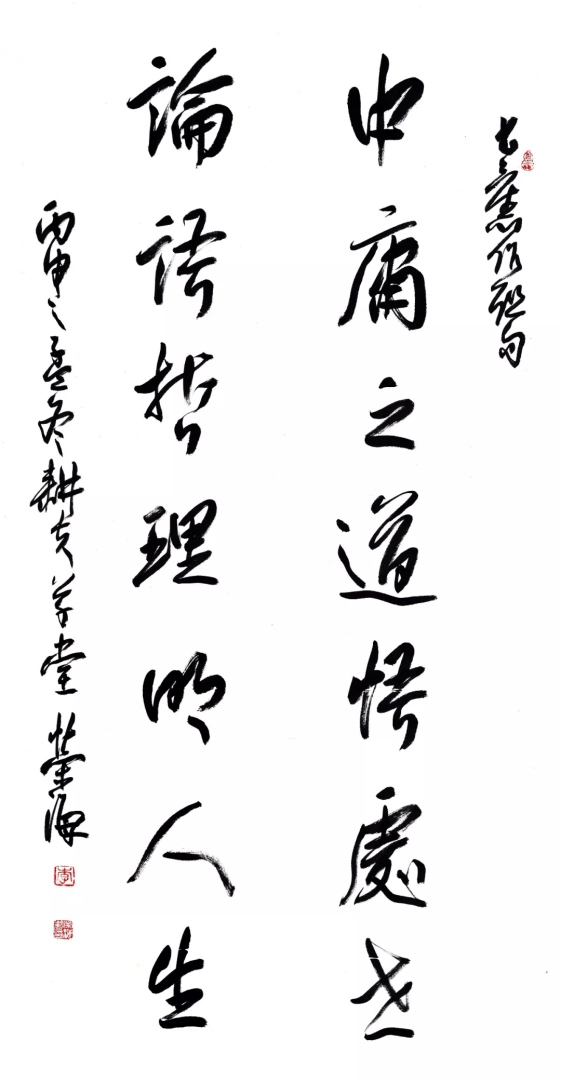 作聯句
中庸之道悟處世
論語哲理明人生
丙申之孟冬耕夫草堂 榮海